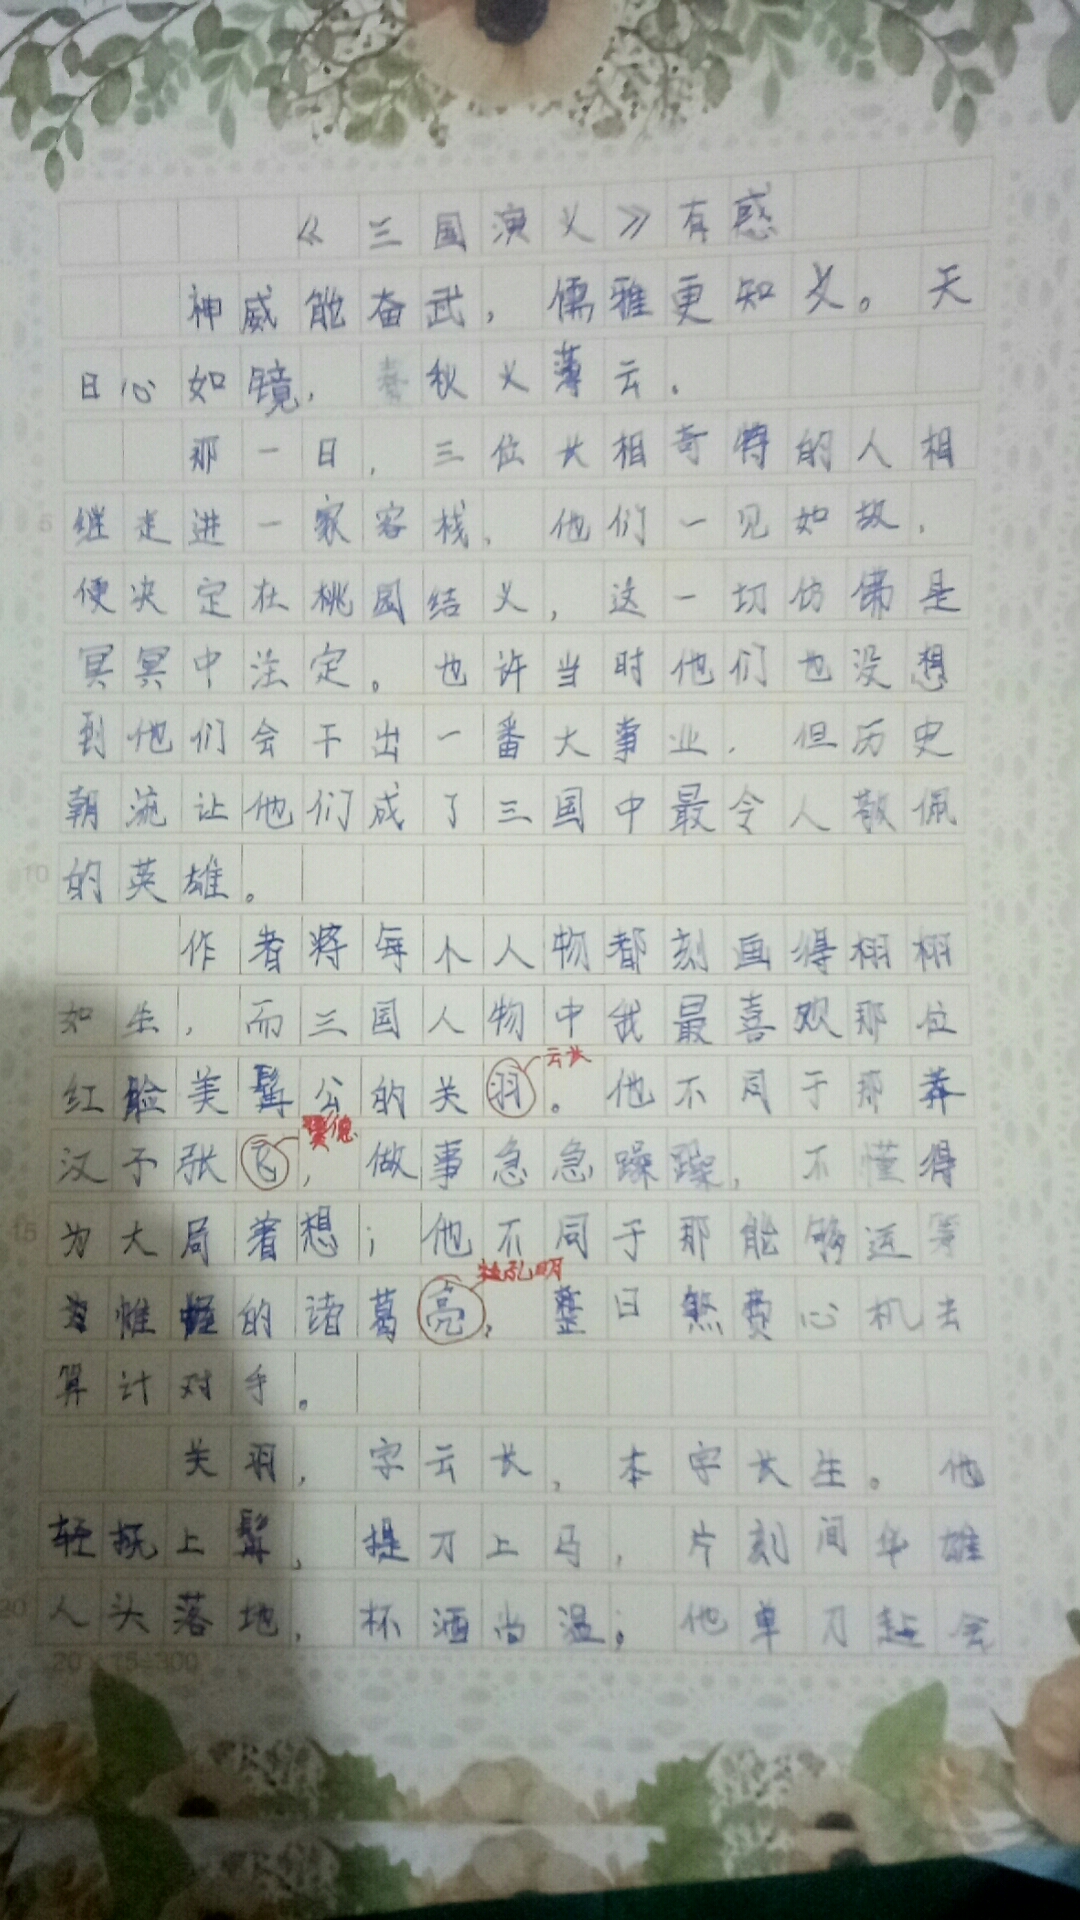 《三国演义》有惑
神威能奋武，儒雅更知义。天
日心如镜，春秋义薄云。
那一日，三位长相奇特的人相
继走进一家客栈，他们一见如故，
便决定在桃园结义，这一切仿佛是
冥冥中注定。也许当时他们也没想
到他们会干出一番大事业，但历史
朝流让他们成了三国中最令人敬佩
的英雄。
作者将每个人物都刻画得栩栩
如生，而三国人物中我最喜欢那位
云长
红脸美髯公的关羽。他不同于那莽
翼德
汉子张飞，做事急急躁躁，不懂得
为大局着想；他不同于那能够运筹
孔明
帷幄的诸葛亮，整日煞费心机去
算计对手。
关羽，字云长，本字长生。他
轻抚上髯，提刀上马，片刻间华雄
人头落地，杯酒尚温；他单刀赴会
5
10
15
20
20×15=300